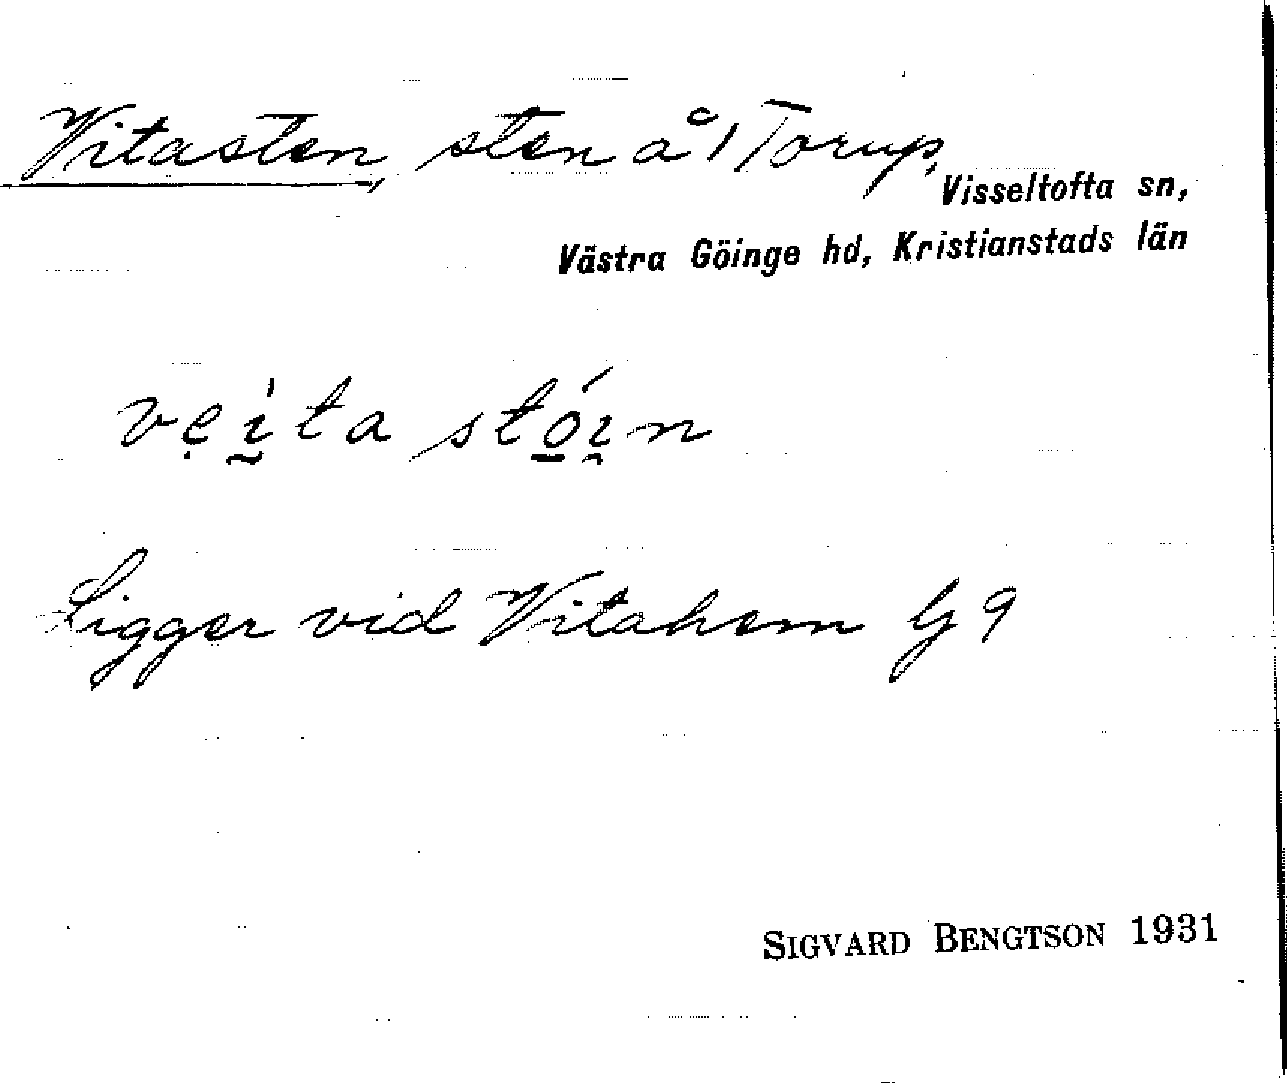 Vitasten, sten å 1 Torup,
Visseltofta sn,
Västra Göinge hd, Kristianstads län
vẹì̯ta stó̠i̯n
Ligger vid Vitahem G 9
SIGVARD BENGTSON 1931